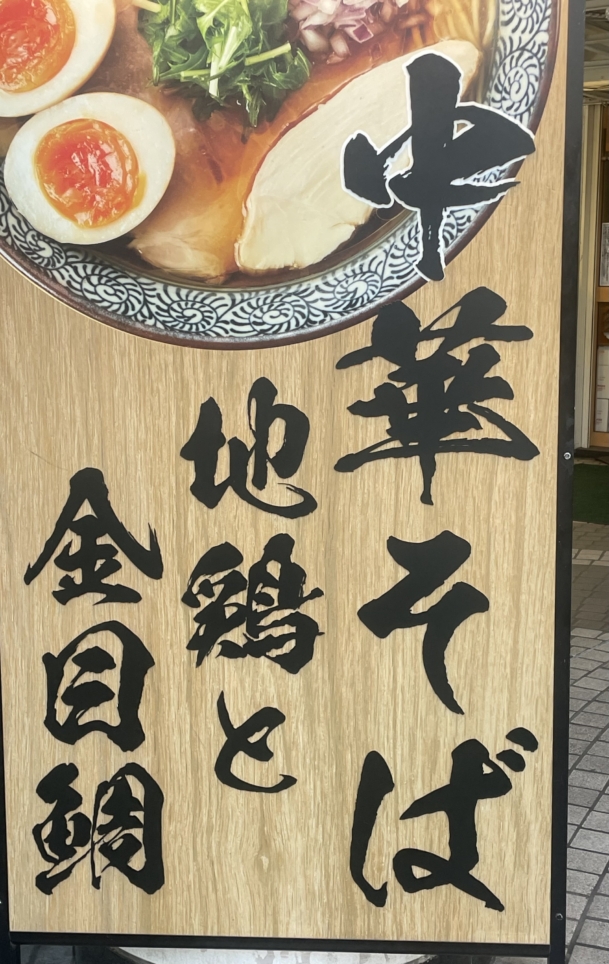 中華そば
地鶏と
金目鯛